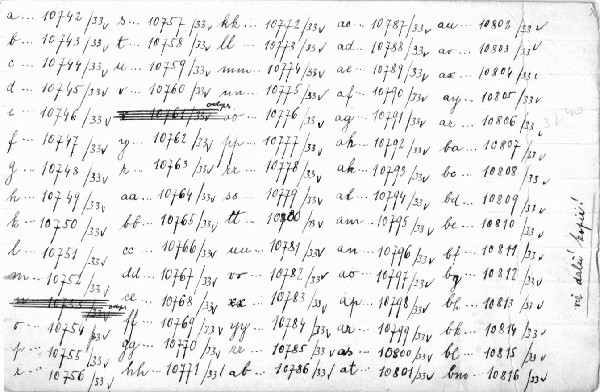 a... 10742/33v s... 10757/33v kk... 10772/33v ac... 10787/33v au... 10802/33v
b... 10743/33v t... 10758/33v ll... 10773/33v ad... 10788/33v av... 10803/33v
c... 10744/33v u... 10759/33v mm... 10774/33v ae... 10789/33v ax... 10804/33v
d... 10745/33v v... 10760/33v nn... 10775/33v af... 10790/33v ay... 10805/33v
e... 10746/33v x... 10761/33v oo... 10776/33v ag... 10791/33v az... 10806/33v
f... 10747/33v y... 10762/33v pp... 10777/33v ah... 10792/33v ba... 10807/33v
g... 10748/33v z... 10763/33v rr... 10778/33v ak... 10793/33v bc... 10808/33v
h... 10749/33v aa... 10764/33v ss... 10779/33v al... 10794/33v bd... 10809/33v
k... 10750/33v bb... 10765/33v tt... 10780/33v am... 10795/33v be... 10810/33v
l... 10751/33v cc... 10766/33v uu... 10781/33v an... 10796/33v bf... 10811/33v
m... 10752/33v dd... 10767/33v vv... 10782/33v ao... 10797/33v bg... 10812/33v
n... 10753/33v ee... 10768/33v xx... 10783/33v ap... 10798/33v bh... 10813/33v
o... 10754/33v ff... 10769/33v yy... 10784/33v ar... 10799/33v bk... 10814/33v
p... 10755/33v gg... 10770/33v zz... 10785/33v as... 10800/33v bl... 10815/33v
r... 10756/33v hh... 10771/33v ab... 10786/33v at... 10801/33v bm... 10816/33v
viz další kopie!